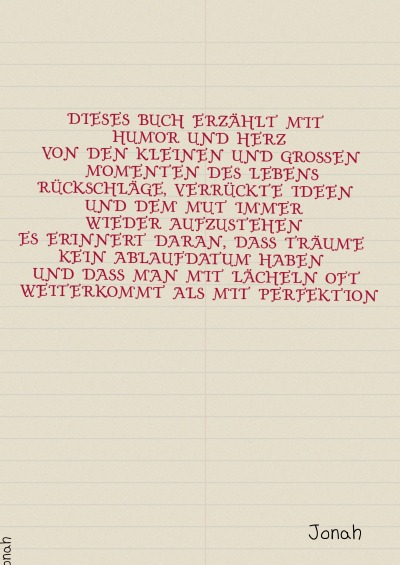 DIESES BUCH ERZÄHLT MIT
HUMOR UND HERZ
VON DEN KLEINEN UND GROSSEN
MOMENTEN DES LEBENS
RÜCKSCHLÄGE, VERRÜCKTE IDEEN
UND DEM MUT IMMER
WIEDER AUFZUSTEHEN
ES ERINNERT DARAN, DASS TRÄUME
KEIN ABLAUFDATUM HABEN
UND DASS MAN MIT LÄCHELN OFT
WEITERKOMMT ALS MIT PERFEKTION
Jonah